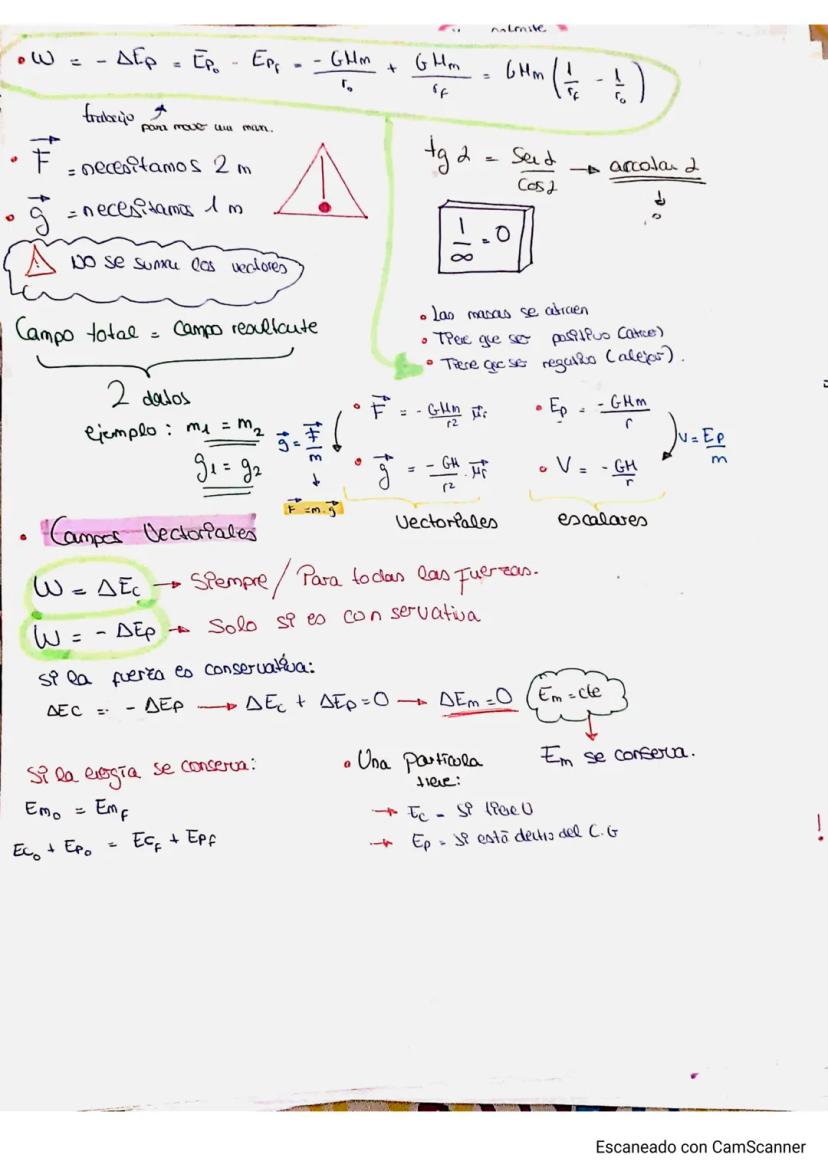 • W = - ΔEp = Ep₀ - Epf = -GMm/r₀ + GMm/rf = GMm (1/rf - 1/r₀)
trabajo para mover una man.
• F⃗ = necesitamos 2 m
• g⃗ = necesitamos 1 m
⚠ NO se suman los vectores
tg α = sen α / cos α → arcotan α
1/∞ = 0
Campo total = campo resultante
2 datos
ejemplo: m₁ = m₂
g₁ = g₂
• Las masas se atraen
• Tiene que ser positivo (atrae)
• Tiene que ser negativo (alejar).
g⃗ = F⃗/m
F⃗ = m · g⃗
• F⃗ = - GMm/r² μ⃗r
• g⃗ = - GM/r² · μ⃗r
Vectoriales
• Ep = -GMm/r
• V = -GM/r
V = Ep/m
escalares
• Campos Vectoriales
W = ΔEc → Siempre / Para todas las fuerzas.
W = - ΔEp → Solo si es conservativa
si la fuerza es conservativa:
ΔEC = - ΔEp → ΔEc + ΔEp = 0 → ΔEm = 0 Em = cte
Em se conserva.
Si la energía se conserva:
Em₀ = Emf
Ec₀ + Ep₀ = Ecf + Epf
• Una partícula tiene:
→ Ec = si tiene v
→ Ep = si está dentro del C.G
!
Escaneado con CamScanner